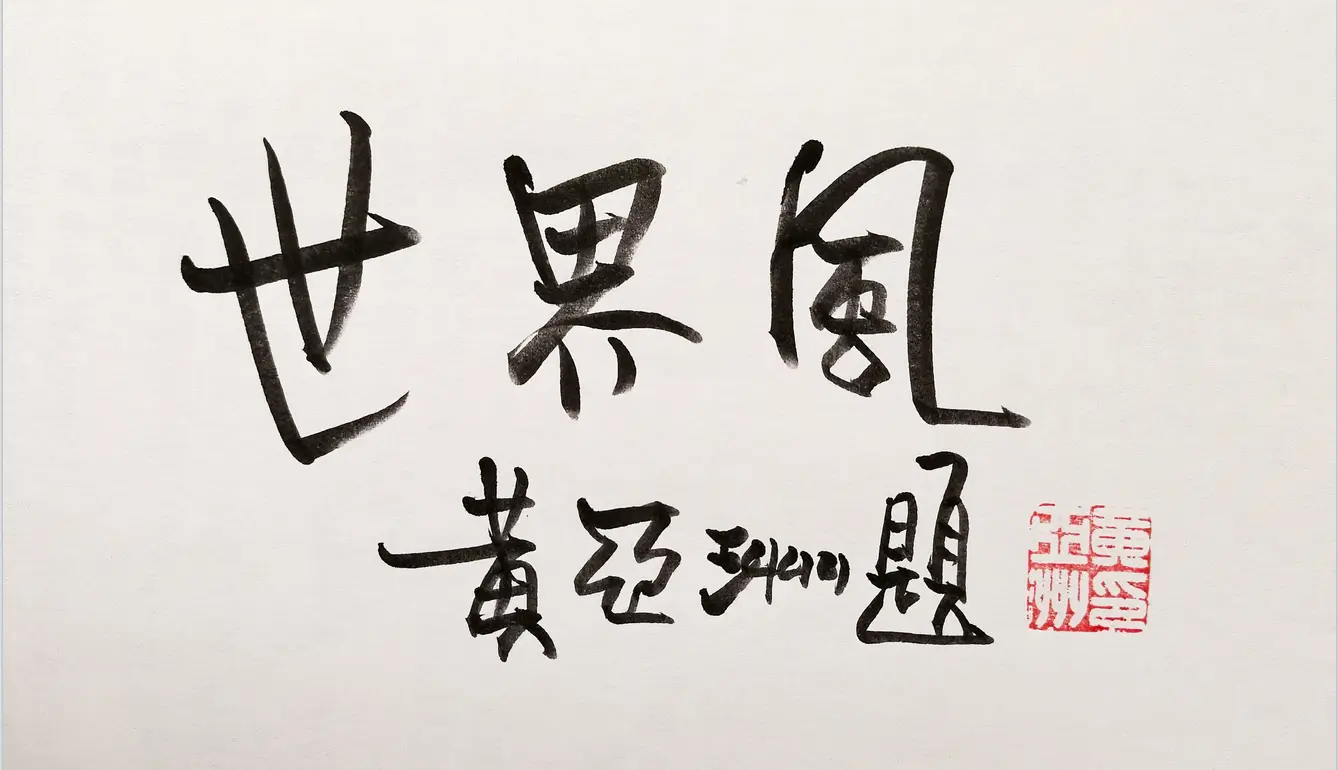 世界風
黃亞洲題
黃印亞洲